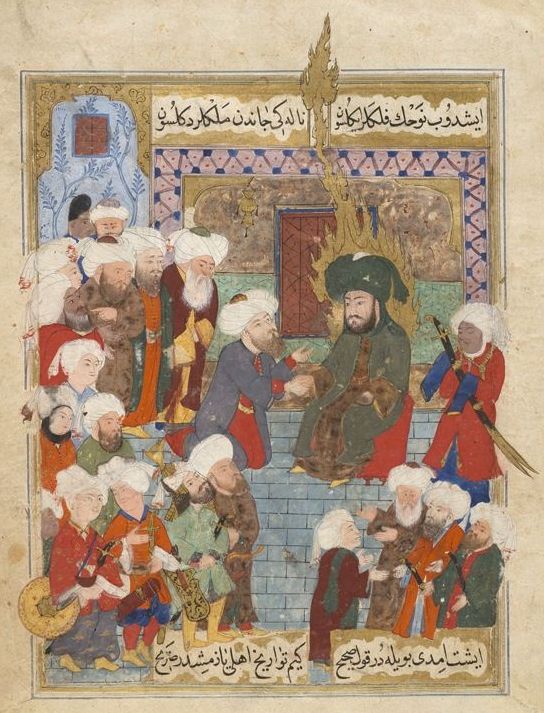 ایشدوب نوحك فلكلر ایكلسون ناله كی جاندن ملكلر دكلسون
ایشت امدی بویله در قول صحیح كیم تواریخ اهلی یازمشدر صریح